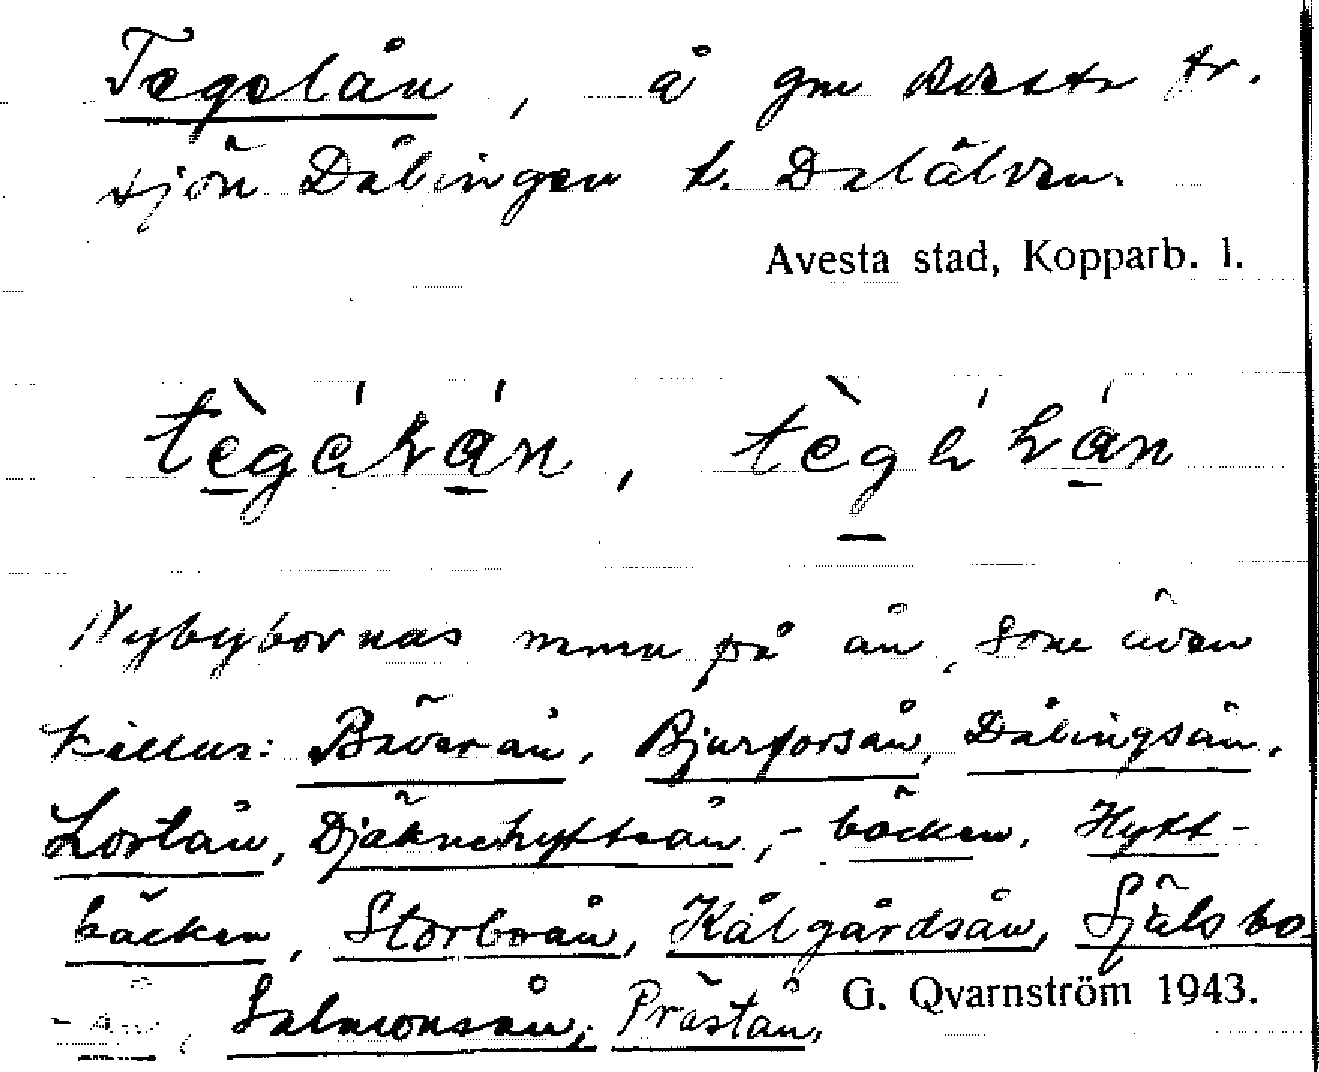 Tegelån, å gm Avesta fr.
sjön Dålingen t. Dalälven.
Avesta stad, Kopparb. l.
Nybybornas namn på ån, som även
kallas: Bäverån, Bjurforsån, Dålingsån,
Lortån, Djäknehyttean, -bäcken, Hytt-
bäcken, Storboån, Kålgårdsån, Själsbo
-ån, Salmonsån, Prästån,
G. Qvarnström 1943.